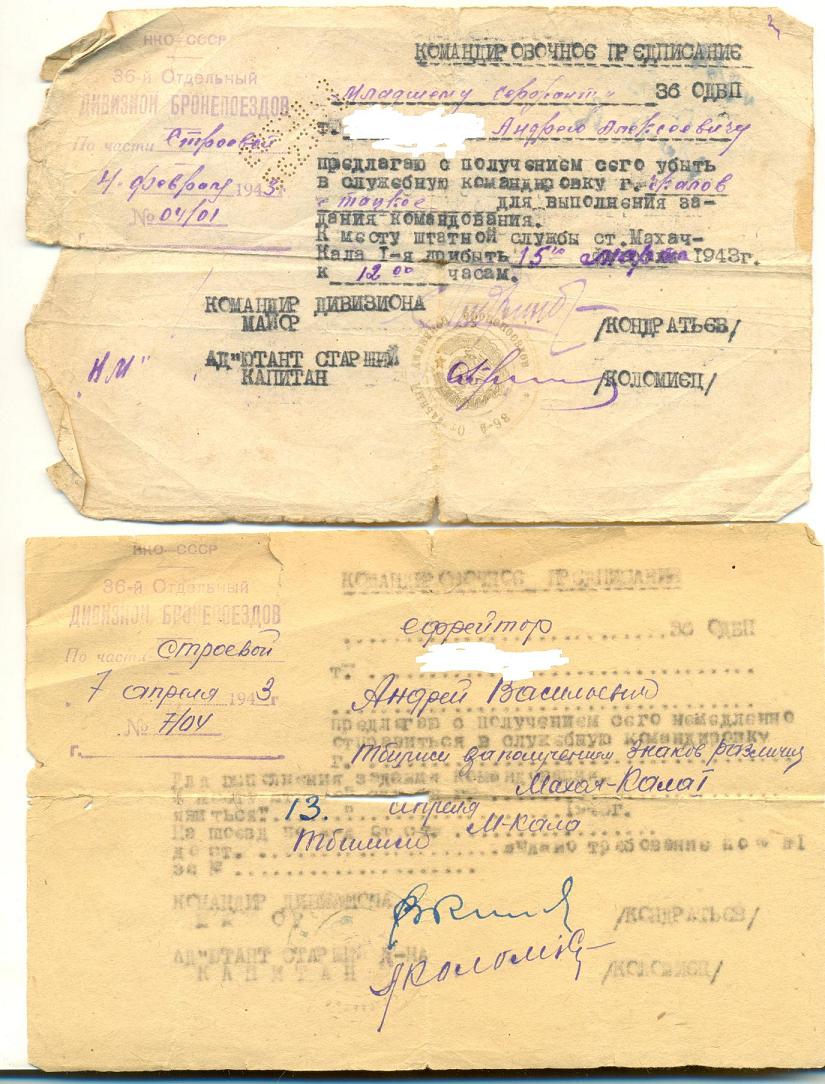 НКО-СССР
36-й Отдельный
ДИВИЗИОН БРОНЕПОЕЗДОВ
По части Строевой
4. февраля 1943г.
№ 04/01
г.
КОМАНДИРОВОЧНОЕ ПРЕДПИСАНИЕ
Младшему Сержанту 36 ОДБП
т. Андрею Алексеевичу
предлагаю с получением сего убыть
в служебную командировку г. Чкалов
для выполнения за-
дания командования.
К месту штатной службы ст. Махач-
Кала I-я прибыть 15го марта 1943г.
к 12 00 часам.
КОМАНДИР ДИВИЗИОНА
МАЙОР /КОНДРАТЬЕВ/
АД"ЮТАНТ СТАРШИЙ
КАПИТАН /КОЛОМИЕЦ/
"НМ"
НКО-СССР
36-й Отдельный
ДИВИЗИОН БРОНЕПОЕЗДОВ
По части Строевой
7 апреля 1943г
№ 7/04
г.
КОМАНДИРОВОЧНОЕ ПРЕДПИСАНИЕ
ефрейтор 36 ОДБП
т.
Андрей Васильевич
предлагаю с получением сего немедленно
отправиться в служебную командировку
г. Тбилиси за получением знаков различия
Для выполнения задания командования
Махач-Кала I
явиться 13. апреля 1943г.
На поезд от ст. М-Кала
до ст. Тбилиси выдано требование ф №1
за №
КОМАНДИР ДИВИЗИОНА
/КОНДРАТЬЕВ/
АД"ЮТАНТ СТАРШИЙ Д-НА
КАПИТАН /КОЛОМИЕЦ/